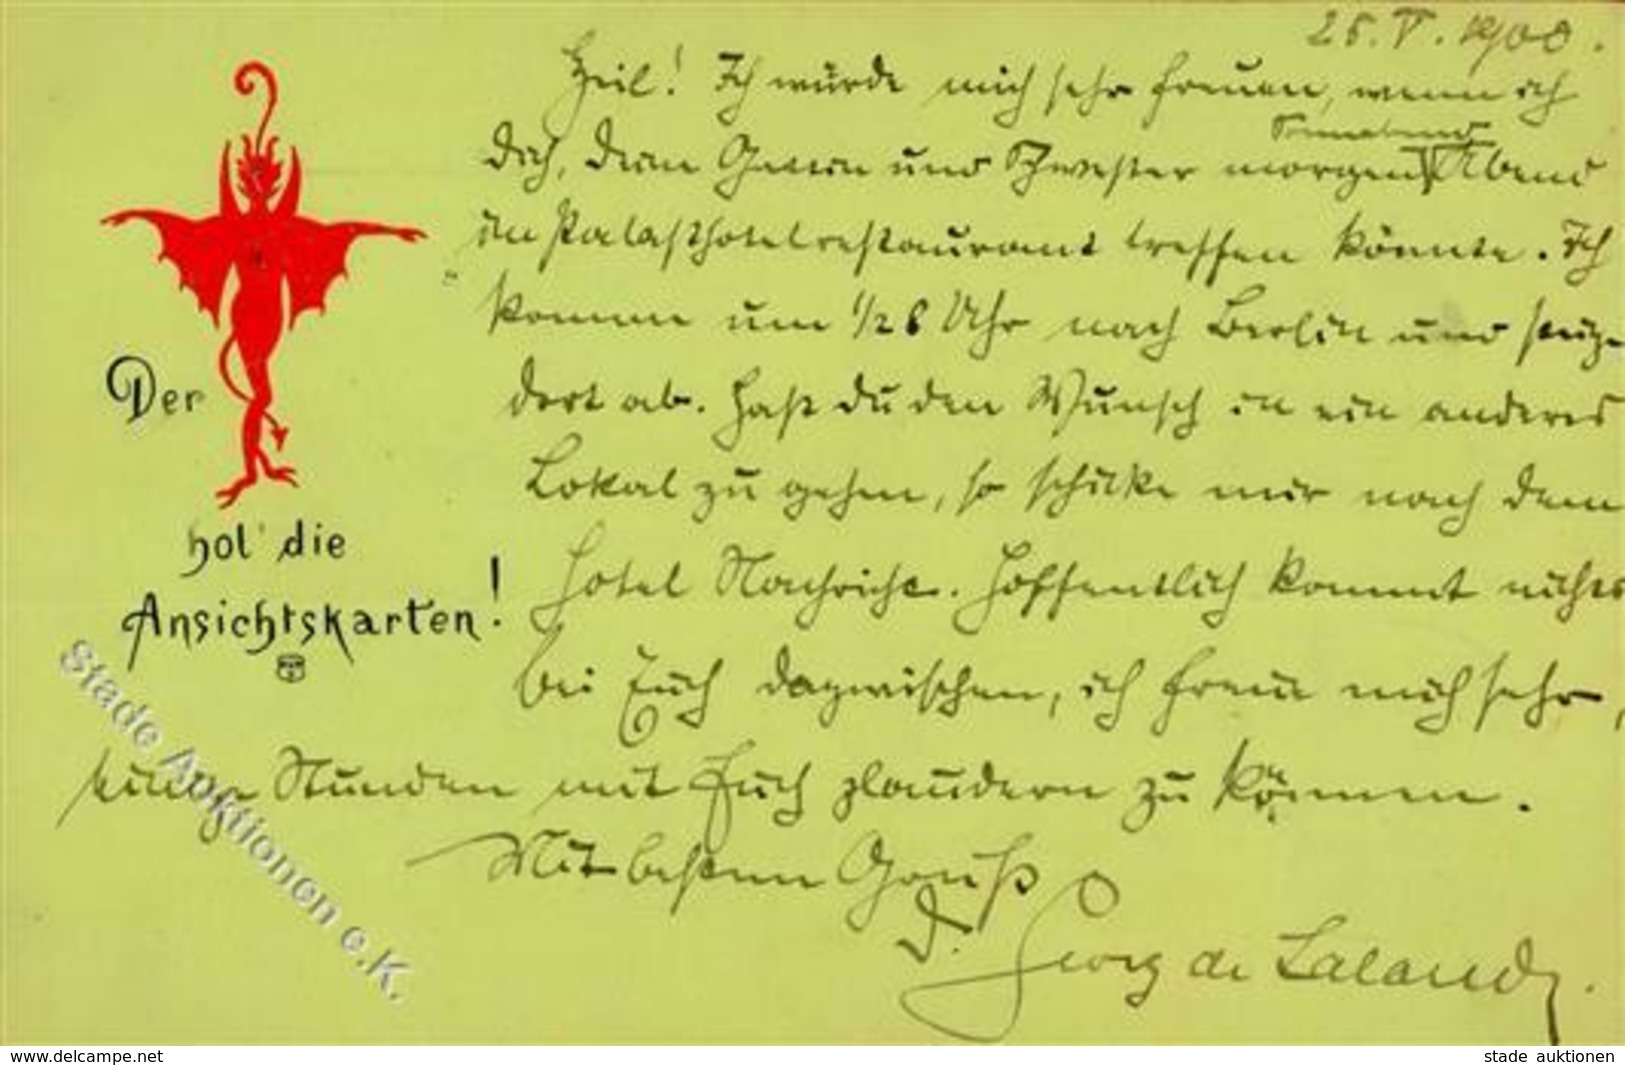 25. V. 1900.
Heil! Ich würde mich sehr freuen, wenn ich
Sonnabend
Dich, Deine Gattin und Schwester morgen Abend
im Palasthotelrestaurant treffen könnte. Ich
komme um 1/2 6 Uhr nach Berlin und steige
dort ab. Hast du den Wunsch in ein anderes
Lokal zu gehen, so schicke mir nach dem
Hotel Nachricht. Hoffentlich kommt nichts
bei Euch dazwischen, ich freue mich sehr,
einige Stunden mit Euch plaudern zu können.
Mit bestem Gruß
D. Georg de Lalande.
Der
hol' die
Ansichtskarten!
Stade Auktionen e.K.
www.delcampe.net
stade auktionen